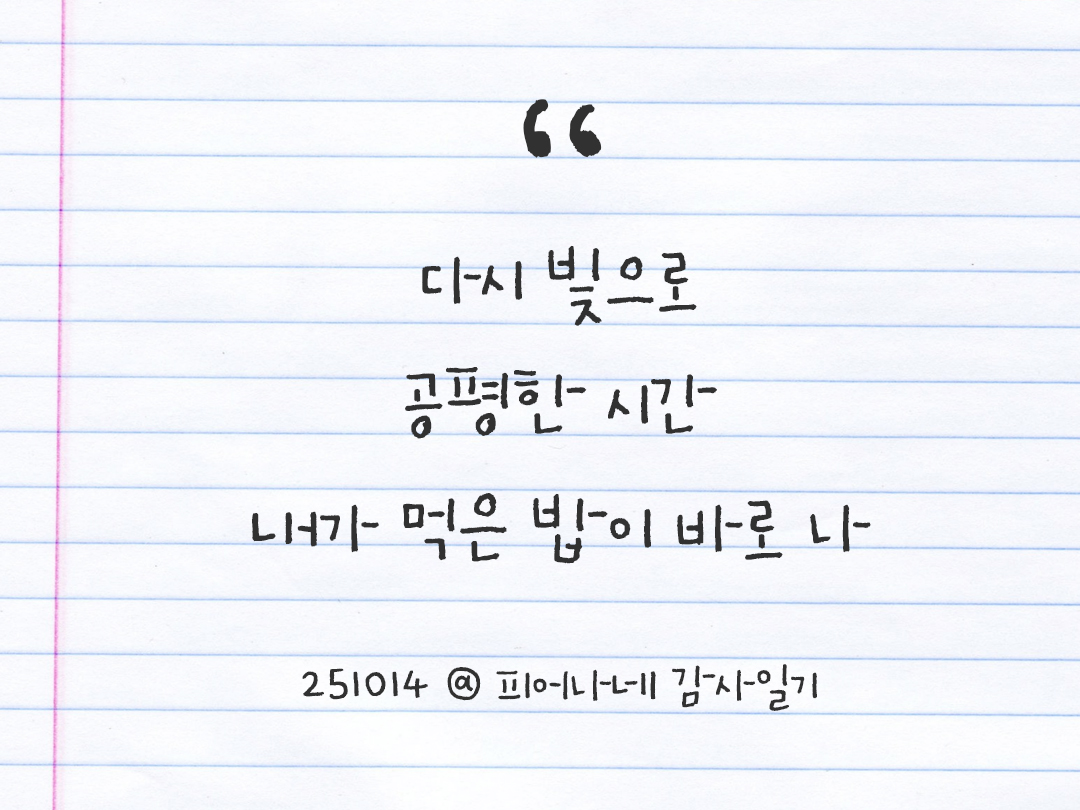 “
다시 빚으로
공평한 시간
내가 먹은 밥이 바로 나
251014 @ 피어나네 감사일기